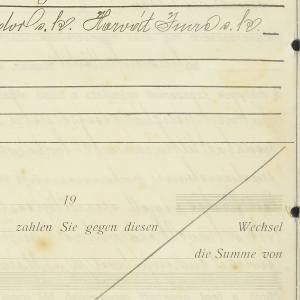 s. k. Horvát Imre s. k.
19
zahlen Sie gegen diesen Wechsel
die Summe von